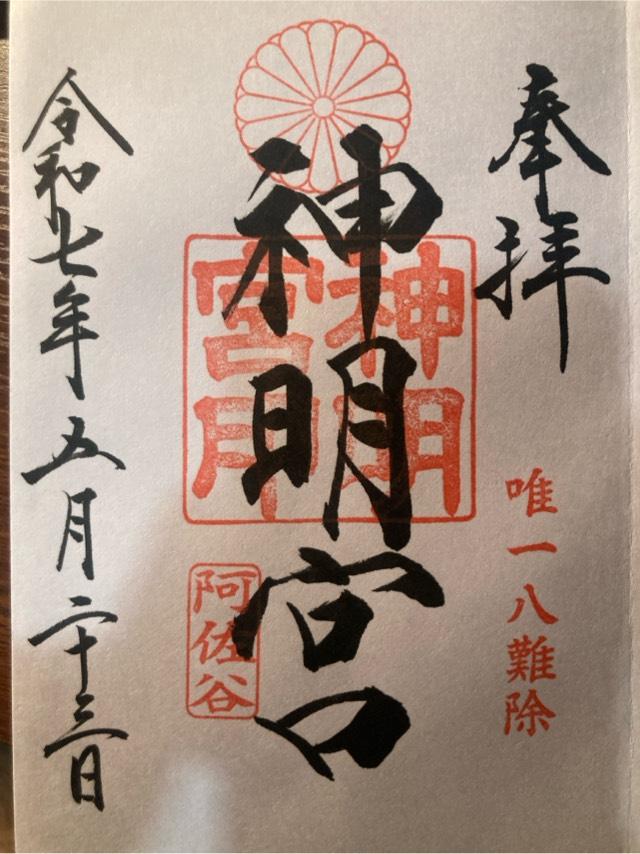 奉拝
唯一八難除
神明宮
神明
宮印
阿佐谷
令和七年五月二十三日